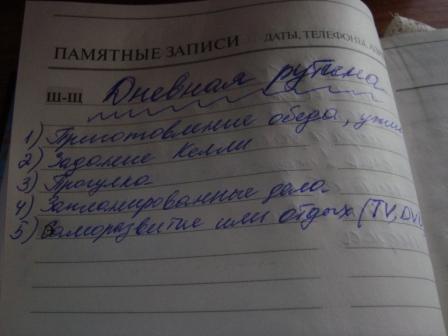 ПАМЯТНЫЕ ЗАПИСИ ДАТЫ, ТЕЛЕФОНЫ,
Ш-Щ Дневная рутина
1) Приготовление обеда,
2) Задание Келли
3) Прогулка
4) Запланированные дела
5) Саморазвитие или отдых (TV,